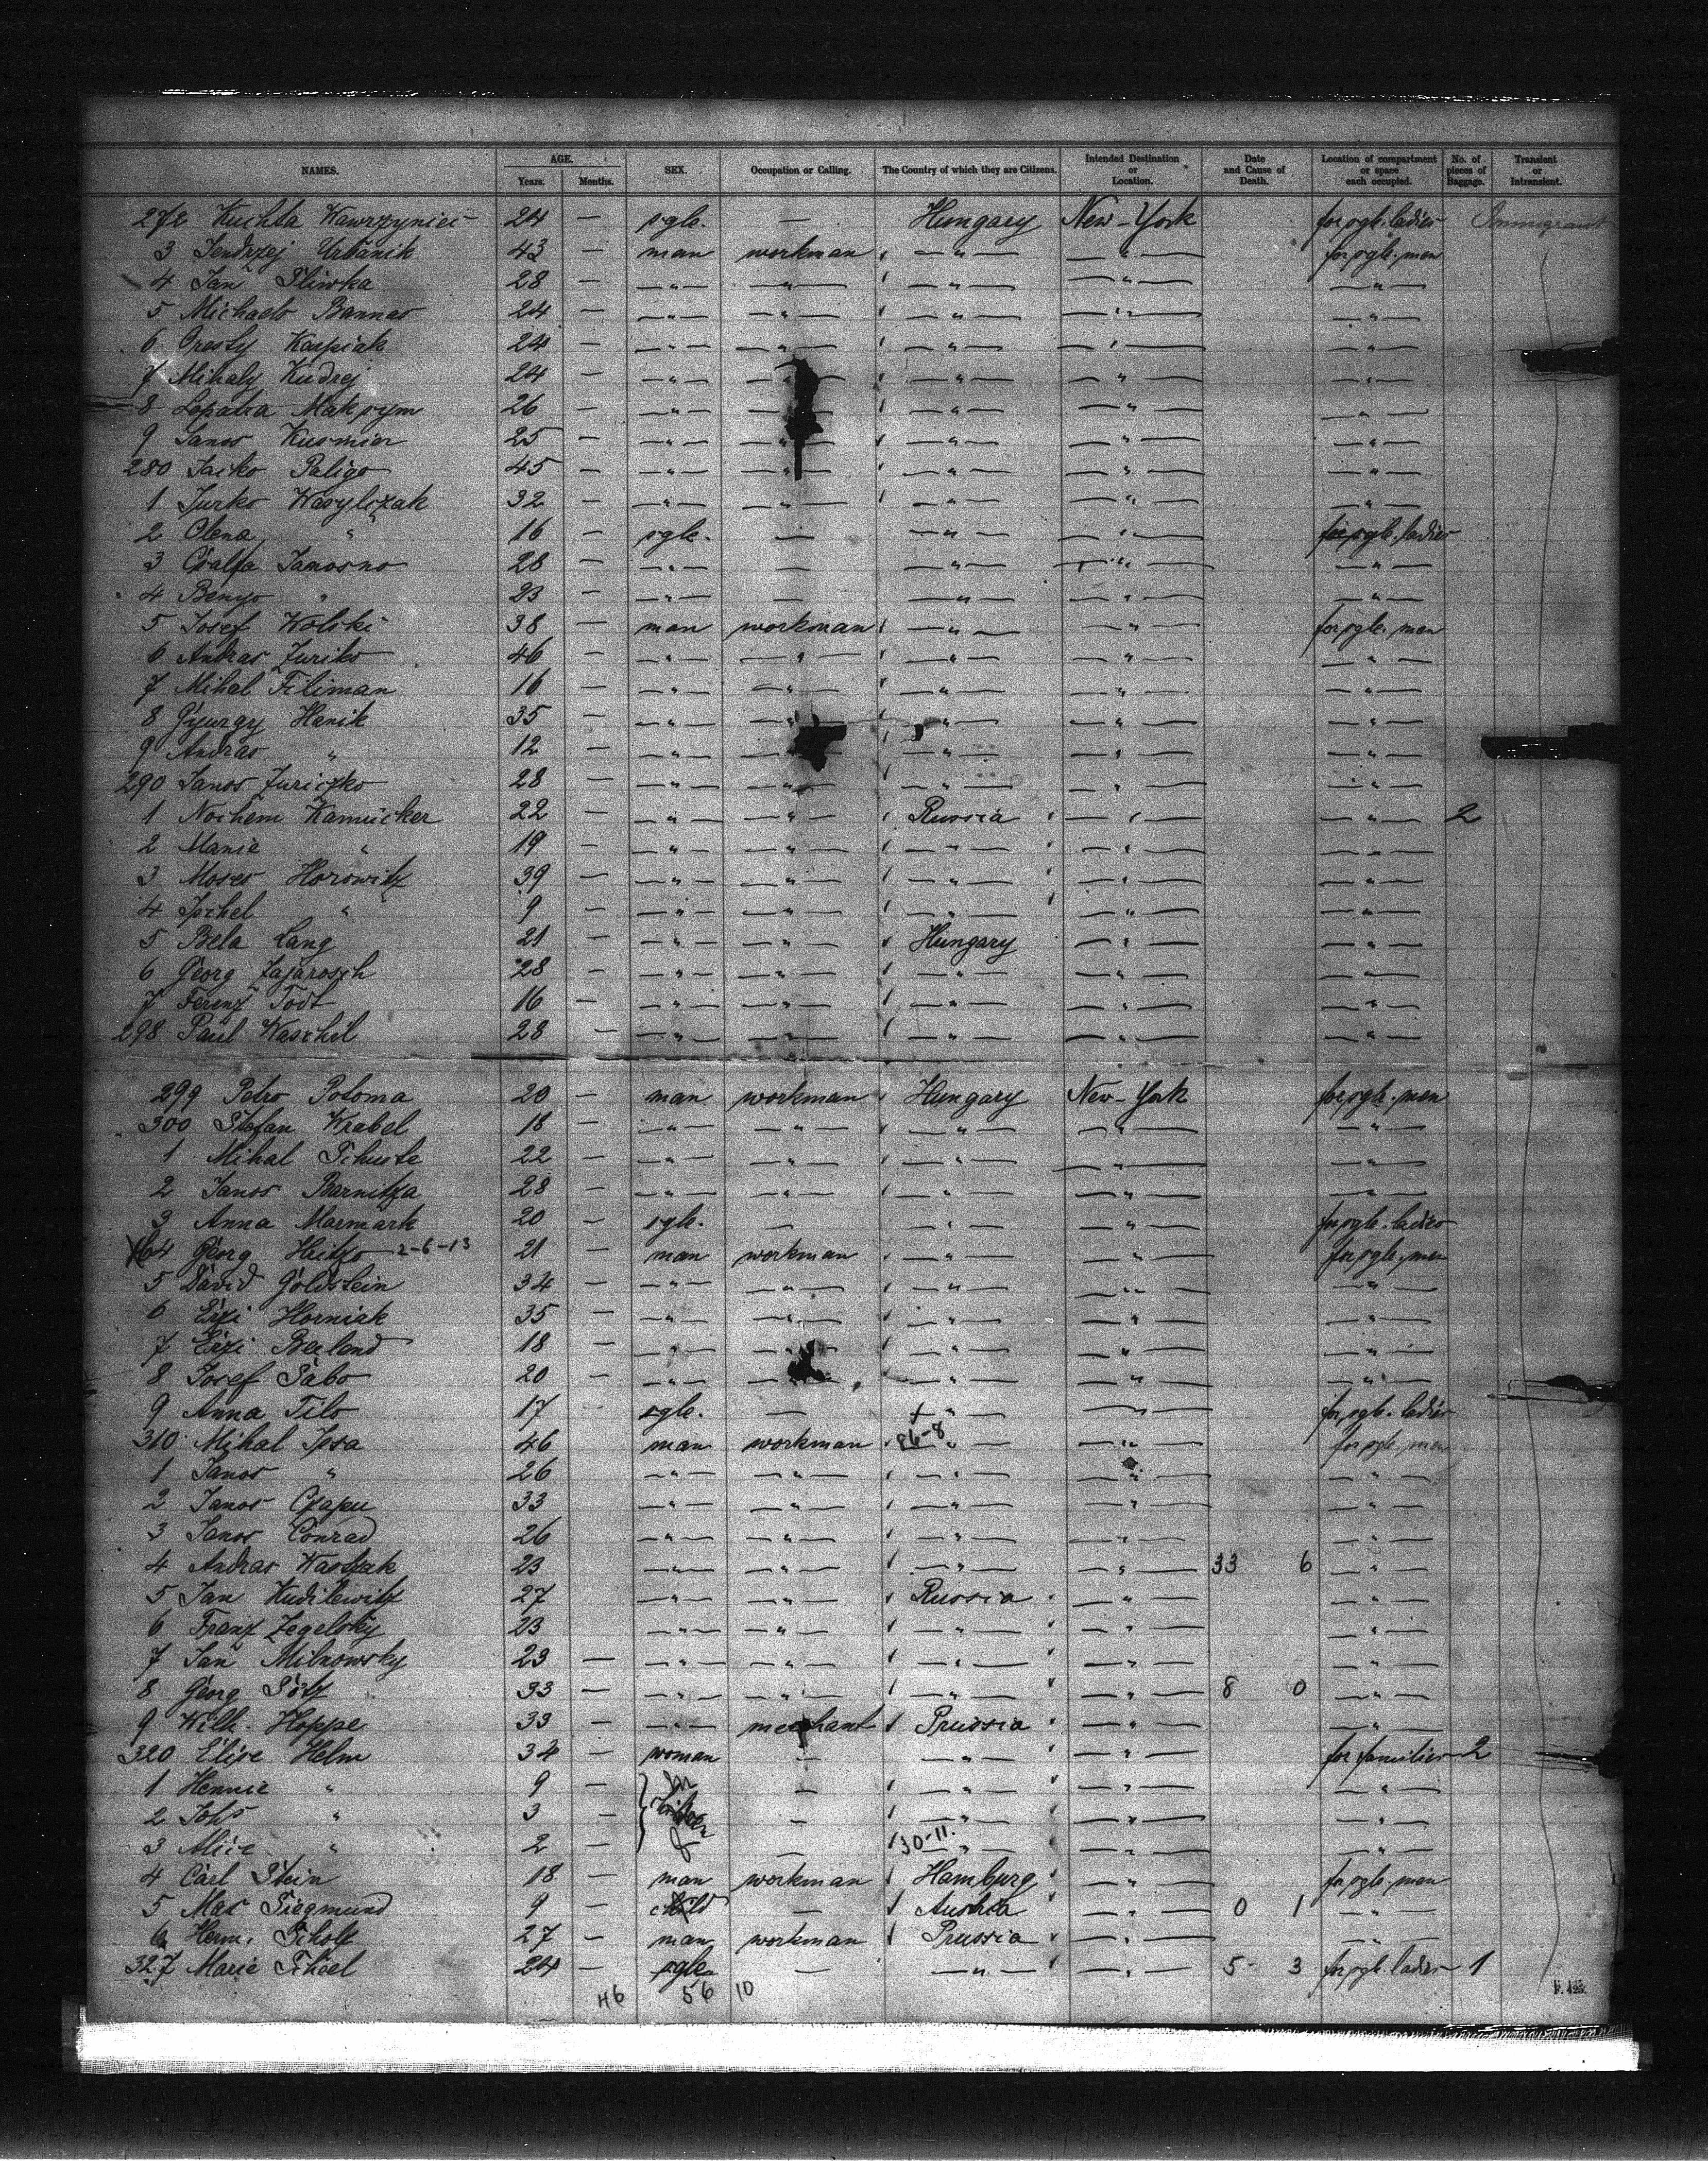 NAMES. AGE. Years. Months. SEX. Occupation or Calling. The Country of which they are Citizens. Intended Destination or Location. Date and Cause of Death. Location of compartment or space each occupied. No. of pieces of Baggage. Transient or Intransient.
272 Kuchta Wawrzyniec 24 — sgle. — Hungary New-York for sgle. ladies Immigrant
3 Jendrzej Urbanik 43 — man workman —"— —"— for sgle. men
4 Jan Sliwka 28 — —"— —"— —"— —"— —"—
5 Michaelo Bannas 24 — —"— —"— —"— —"— —"—
6 Oresty Karpiak 24 — —"— —"— —"— —"— —"—
7 Mihaly Kudrej 24 — —"— —"— —"— —"— —"—
8 Lopatra Maksym 26 — —"— —"— —"— —"— —"—
9 Janos Kusmier 25 — —"— —"— —"— —"— —"—
280 Jacko Paligo 45 — —"— —"— —"— —"— —"—
1 Jurko Wasylczak 32 — —"— —"— —"— —"— —"—
2 Olena " 16 — sgle. — —"— —"— for sgle. ladies
3 Csalfa Janosno 28 — —"— — —"— —"— —"—
4 Benyo " 23 — —"— — —"— —"— —"—
5 Josef Wolski 38 — man workman —"— —"— for sgle. men
6 Andras Juriko 46 — —"— —"— —"— —"— —"—
7 Mihal Filiman 16 — —"— —"— —"— —"— —"—
8 Gyurgy Hanik 35 — —"— —"— —"— —"— —"—
9 Andras " 12 — —"— —"— —"— —"— —"—
290 Janos Juriczko 28 — —"— —"— —"— —"— —"—
1 Nochem Kamicker 22 — —"— —"— Russia —"— —"— 2
2 Manie " 19 — —"— —"— —"— —"— —"—
3 Moses Horowitz 39 — —"— —"— —"— —"— —"—
4 Jochel " 9 — —"— —"— —"— —"— —"—
5 Bela Lang 21 — —"— —"— Hungary —"— —"—
6 Georg Zajarosch 28 — —"— —"— —"— —"— —"—
7 Ferenz Todt 16 — —"— —"— —"— —"— —"—
298 Paul Waschil 28 — —"— —"— —"— —"— —"—
299 Petro Potoma 20 — man workman Hungary New-York for sgle. men
300 Stefan Wrabel 18 — —"— —"— —"— —"— —"—
1 Mihal Schusta 22 — —"— —"— —"— —"— —"—
2 Janos Barnitza 28 — —"— —"— —"— —"— —"—
3 Anna Marmark 20 — sgle. — —"— —"— for sgle. ladies
4 Georg Hritzo 2-6-13 21 — man workman —"— —"— for sgle. men
5 David Goldstein 34 — —"— —"— —"— —"— —"—
6 Erzi Horniak 35 — —"— —"— —"— —"— —"—
7 Erzi Berland 18 — —"— —"— —"— —"— —"—
8 Josef Sabo 20 — —"— —"— —"— —"— —"—
9 Anna Tilo 17 — sgle. — —"— —"— for sgle. ladies
310 Mihal Josa 46 man workman 86-8 —"— —"— for sgle. men
1 Janos " 26 —"— —"— —"— —"— —"—
2 Janos Czapu 33 —"— —"— —"— —"— —"—
3 Janos Conrad 26 —"— —"— —"— —"— —"—
4 Andras Wastzak 23 —"— —"— —"— —"— 33 6 —"—
5 Jan Kudilewitz 27 —"— —"— Russia —"— —"—
6 Franz Zegelsky 23 —"— —"— —"— —"— —"—
7 Jan Milnowsky 23 — —"— —"— —"— —"— —"—
8 Georg Götz 33 — —"— —"— —"— —"— 8 0 —"—
9 Wilh. Hoppe 33 — —"— merchant Prussia —"— —"—
320 Elise Helm 34 — woman — —"— —"— for families 2
1 Hennie " 9 — — —"— —"— —"—
2 Johs " 3 — — —"— —"— —"—
3 Alice " 2 — — 30-11. —"— —"— —"—
4 Carl Stein 18 — man workman Hamburg —"— for sgle. men
5 Max Siegmund 9 — child — Austria —"— 0 1 —"—
6 Herm. Scholz 27 — man workman Prussia —"— —"—
327 Marie Scheel 24 — sgle — —"— —"— 5 3 for sgle. ladies 1
46 56 10